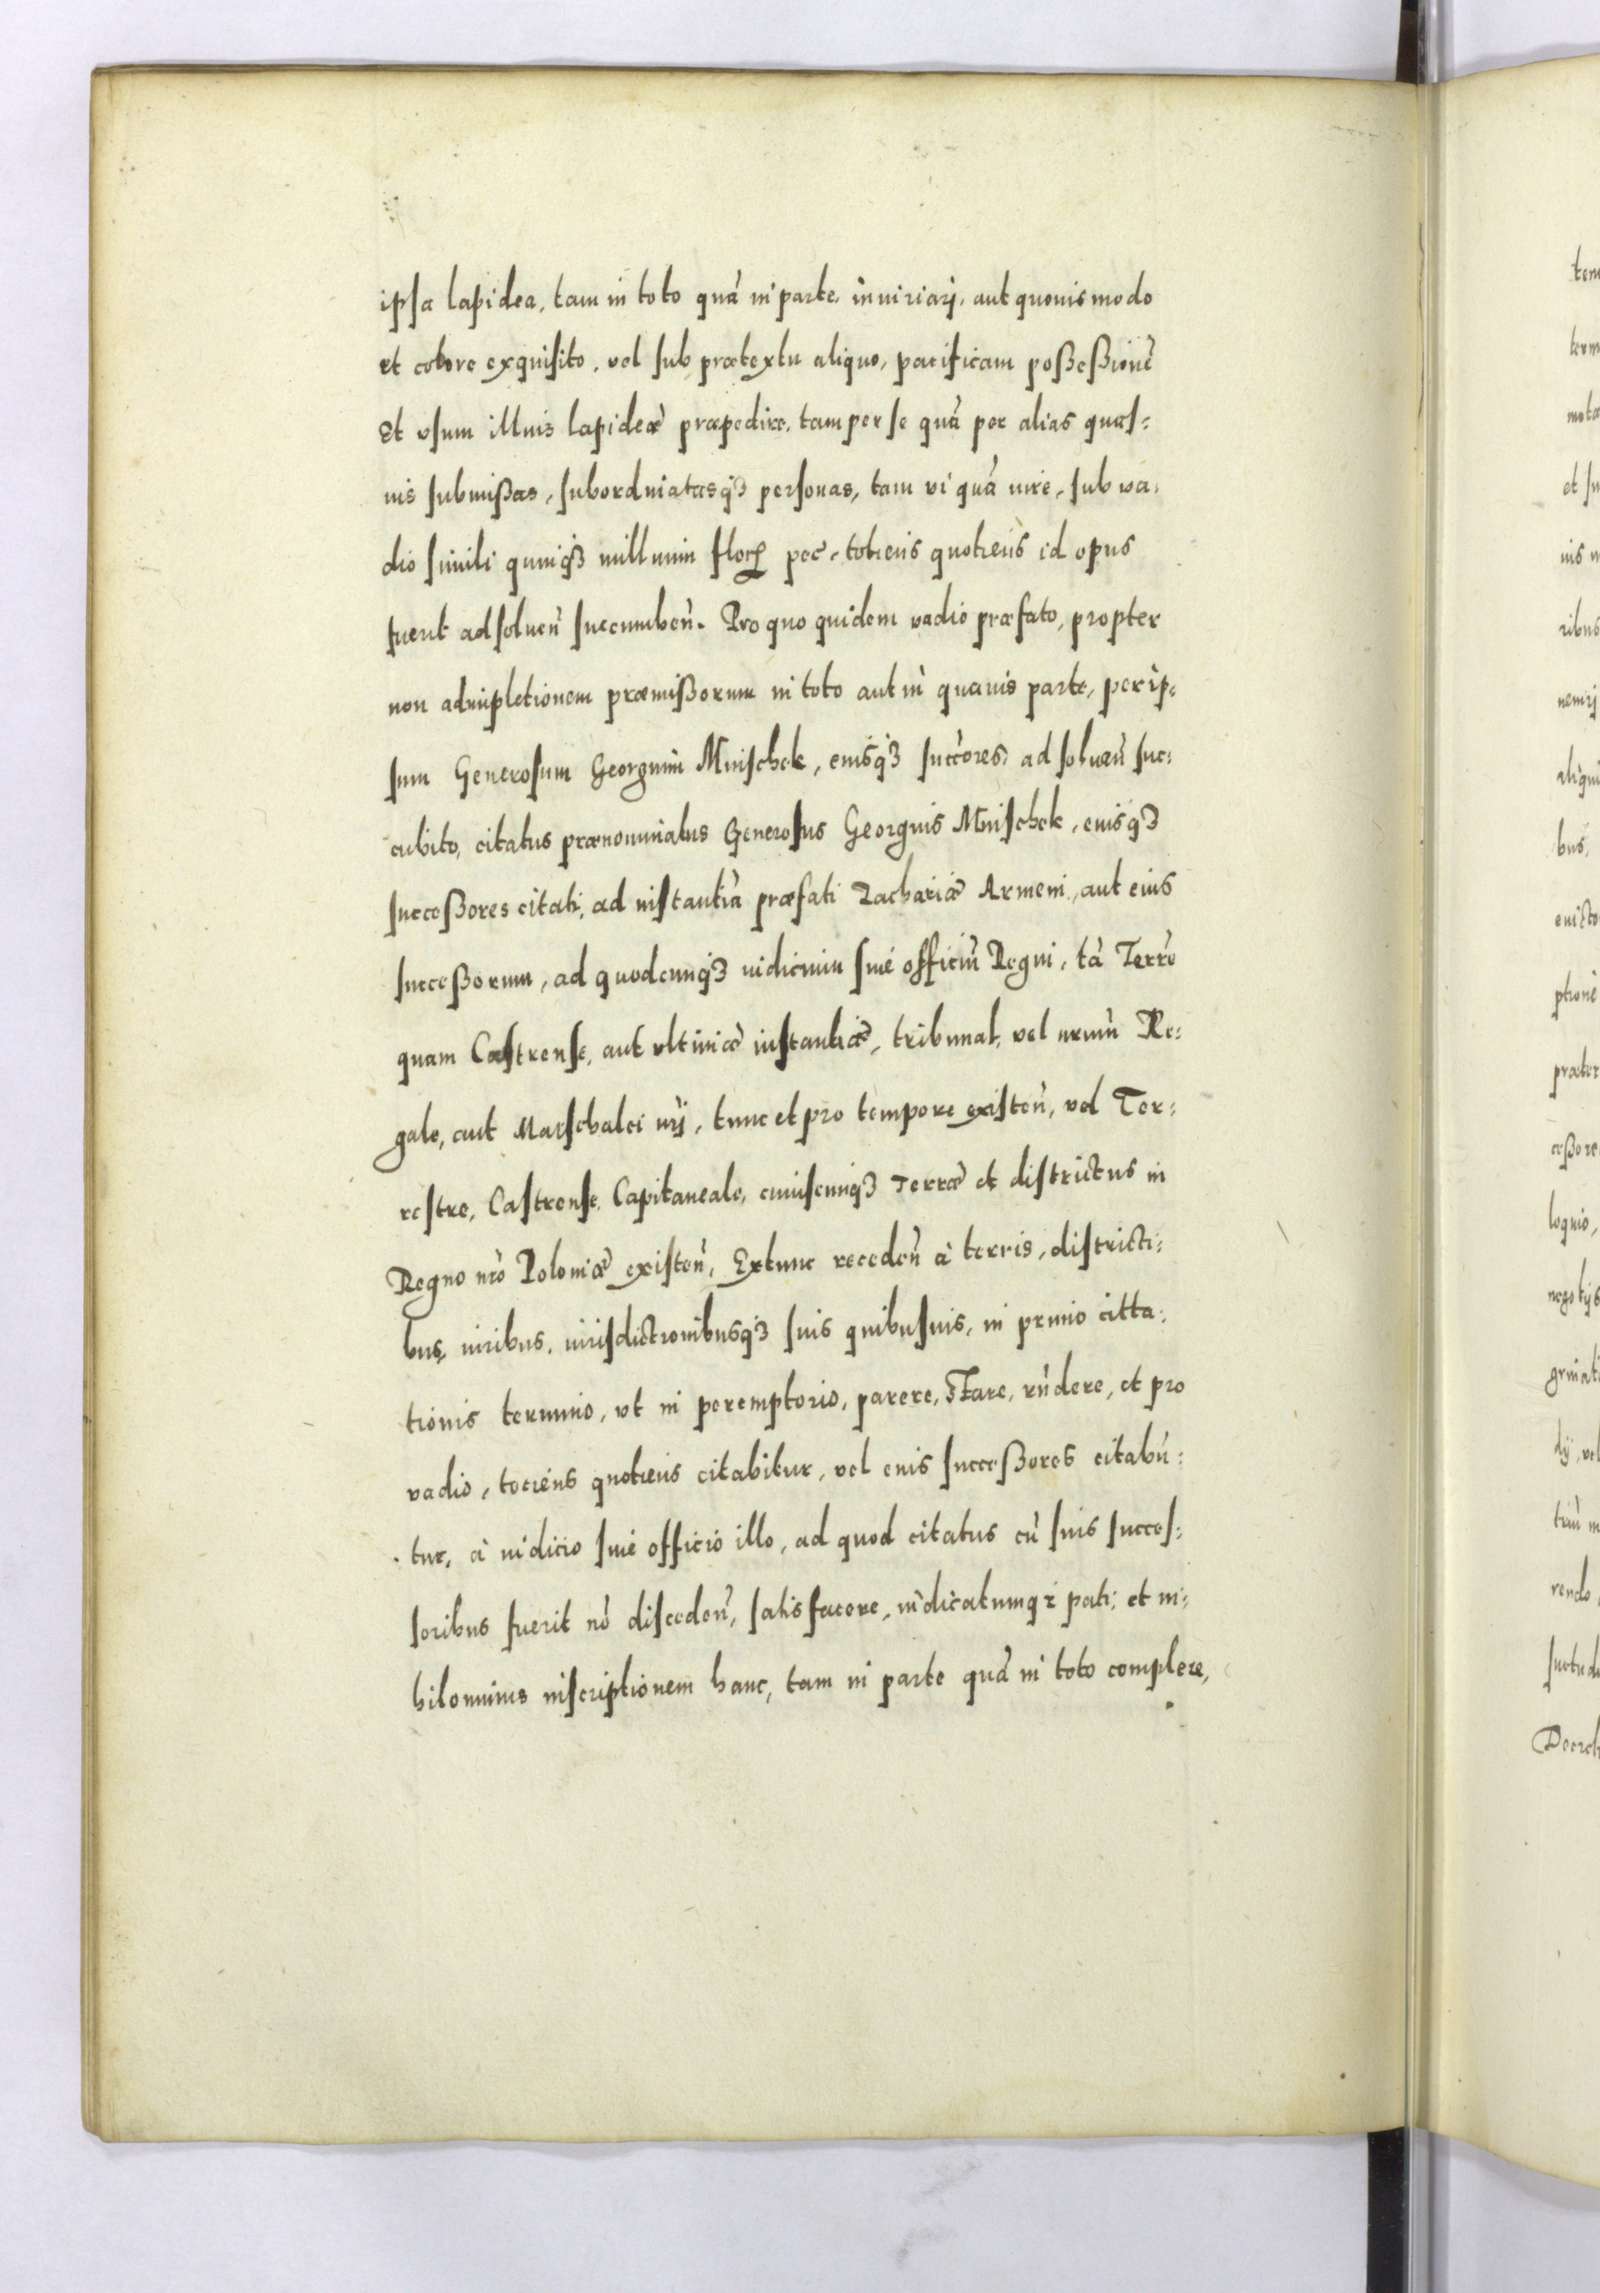 ipsa lapidea, tam in toto quā in parte, iniuriarj, aut quouis modo
et colore exquisito, vel sub prætextu aliquo, pacificam poßeßionē
Et vsum illius lapideæ præpedire, tam per se quā per alias quas=
uis submißas, subordinatasq3 personas, tam vi quā iure, sub va,
dio simili quinq3 millium flor pec, totiens quotiens id opus
fuerit ad soluen̄ succumben̄. Pro quo quidem vadio præfato, propter
non adimpletionem præmißorum in toto aut in quauis parte, per ip=
sum Generosum Georgium Mnischek, eiusq3 succores, ad soluen̄ suc=
cubito, citatus prænominatus Generosus Georgius Mnischek, eiusq3
succeßores citati, ad instantiā præfati Zachariæ Armeni, aut eius
succeßorum, ad quodcunq3 iudicium siue officiū Regni, tā Terrē
quam Castrense, aut vltimæ instantiæ, tribunal, vel nrūm Re=
gale, aut Marschalci nrj, tunc et pro tempore existen̄, vel Ter=
restre, Castrense, Capitaneale, cuiuscunq3 Terræ et districtus in
Regno nrō Poloniæ existen̄, Extunc receden̄ à terris, districti=
bus, iuribus, iurisdictionibusq3 suis quibusuis, in primo citta=
tionis termino, vt in peremptorio, parere, stare, rn̄dere, et pro
vadio, tociens quotiens citabitur, vel eius succeßores citabū=
tur, à iudicio siue officio illo, ad quod citatus cū suis succes=
soribus fuerit nō disceden̄, satisfacere, iudicatumqz pati, et ni=
hilominus inscriptionem hanc, tam in parte quā in toto complere,